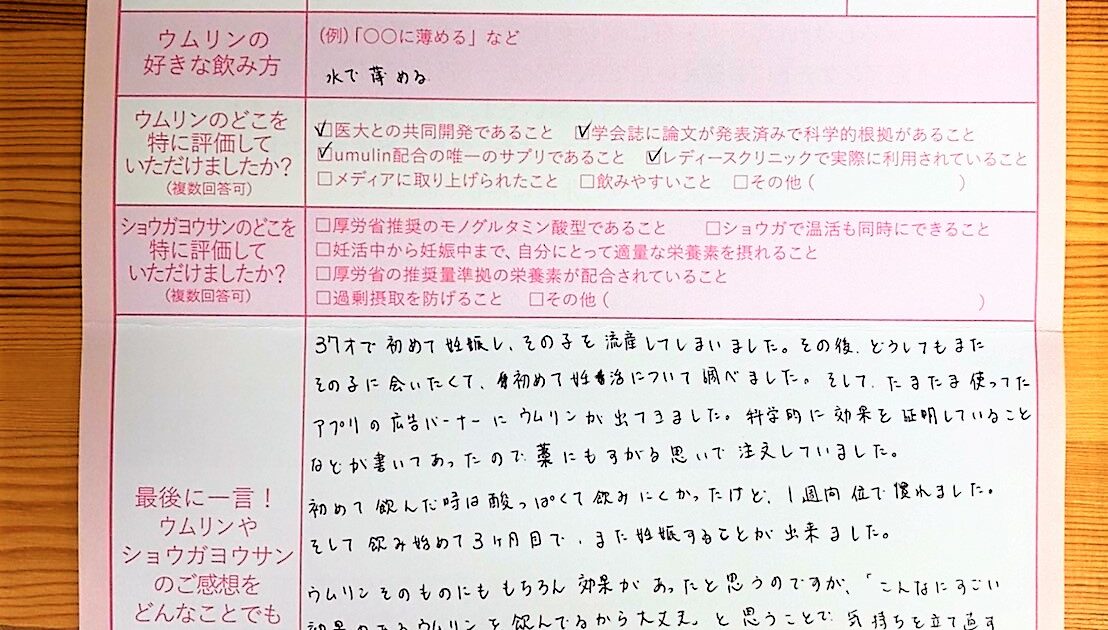 ウムリンの
好きな飲み方
(例)「〇〇に薄める」など
水で薄める
ウムリンのどこを
特に評価して
いただけましたか?
(複数回答可)
☑医大との共同開発であること ☑学会誌に論文が発表済みで科学的根拠があること
☑umulin配合の唯一のサプリであること ☑レディースクリニックで実際に利用されていること
□メディアに取り上げられたこと □飲みやすいこと □その他( )
ショウガヨウサンのどこを
特に評価して
いただけましたか?
(複数回答可)
□厚労省推奨のモノグルタミン酸型であること □ショウガで温活も同時にできること
□妊活中から妊娠中まで、自分にとって適量な栄養素を摂れること
□厚労省の推奨量準拠の栄養素が配合されていること
□過剰摂取を防げること □その他( )
最後に一言!
ウムリンや
ショウガヨウサン
のご感想を
どんなことでも
37才で初めて妊娠し、その子を流産してしまいました。その後、どうしてもまた
その子に会いたくて、初めて妊活について調べました。そして、たまたま使ってた
アプリの広告バーナーにウムリンが出てきました。科学的に効果を証明していること
などが書いてあったので藁にもすがる思いで注文していました。
初めて飲んだ時は酸っぱくて飲みにくかったけど、1週間位で慣れました。
そして飲み始めて3ヶ月目で、また妊娠することが出来ました。
ウムリンそのものにももちろん効果があったと思うのですが、「こんなにすごい
効果のあるウムリンを飲んでるから大丈夫」と思うことで気持ちを立て直す